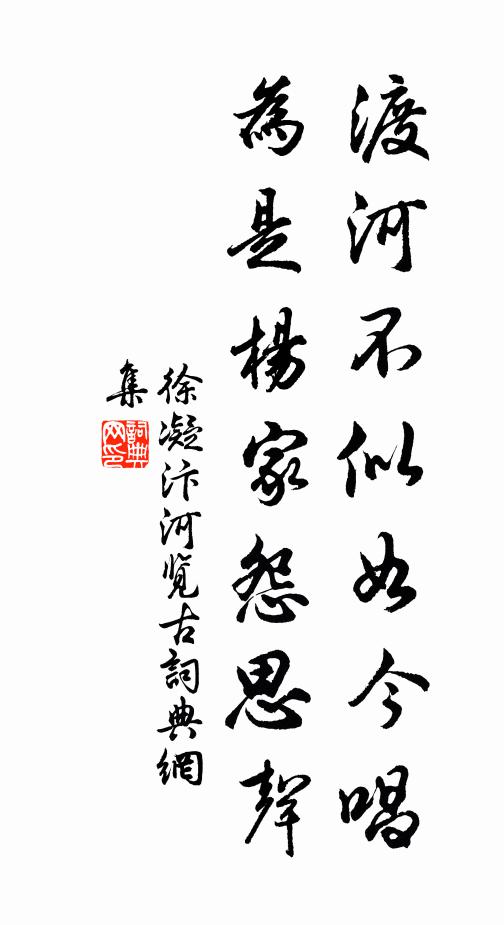 渡河不似如今唱
為是楊家怨思聲
徐凝汴河覽古詞典網
集
詞典
网印